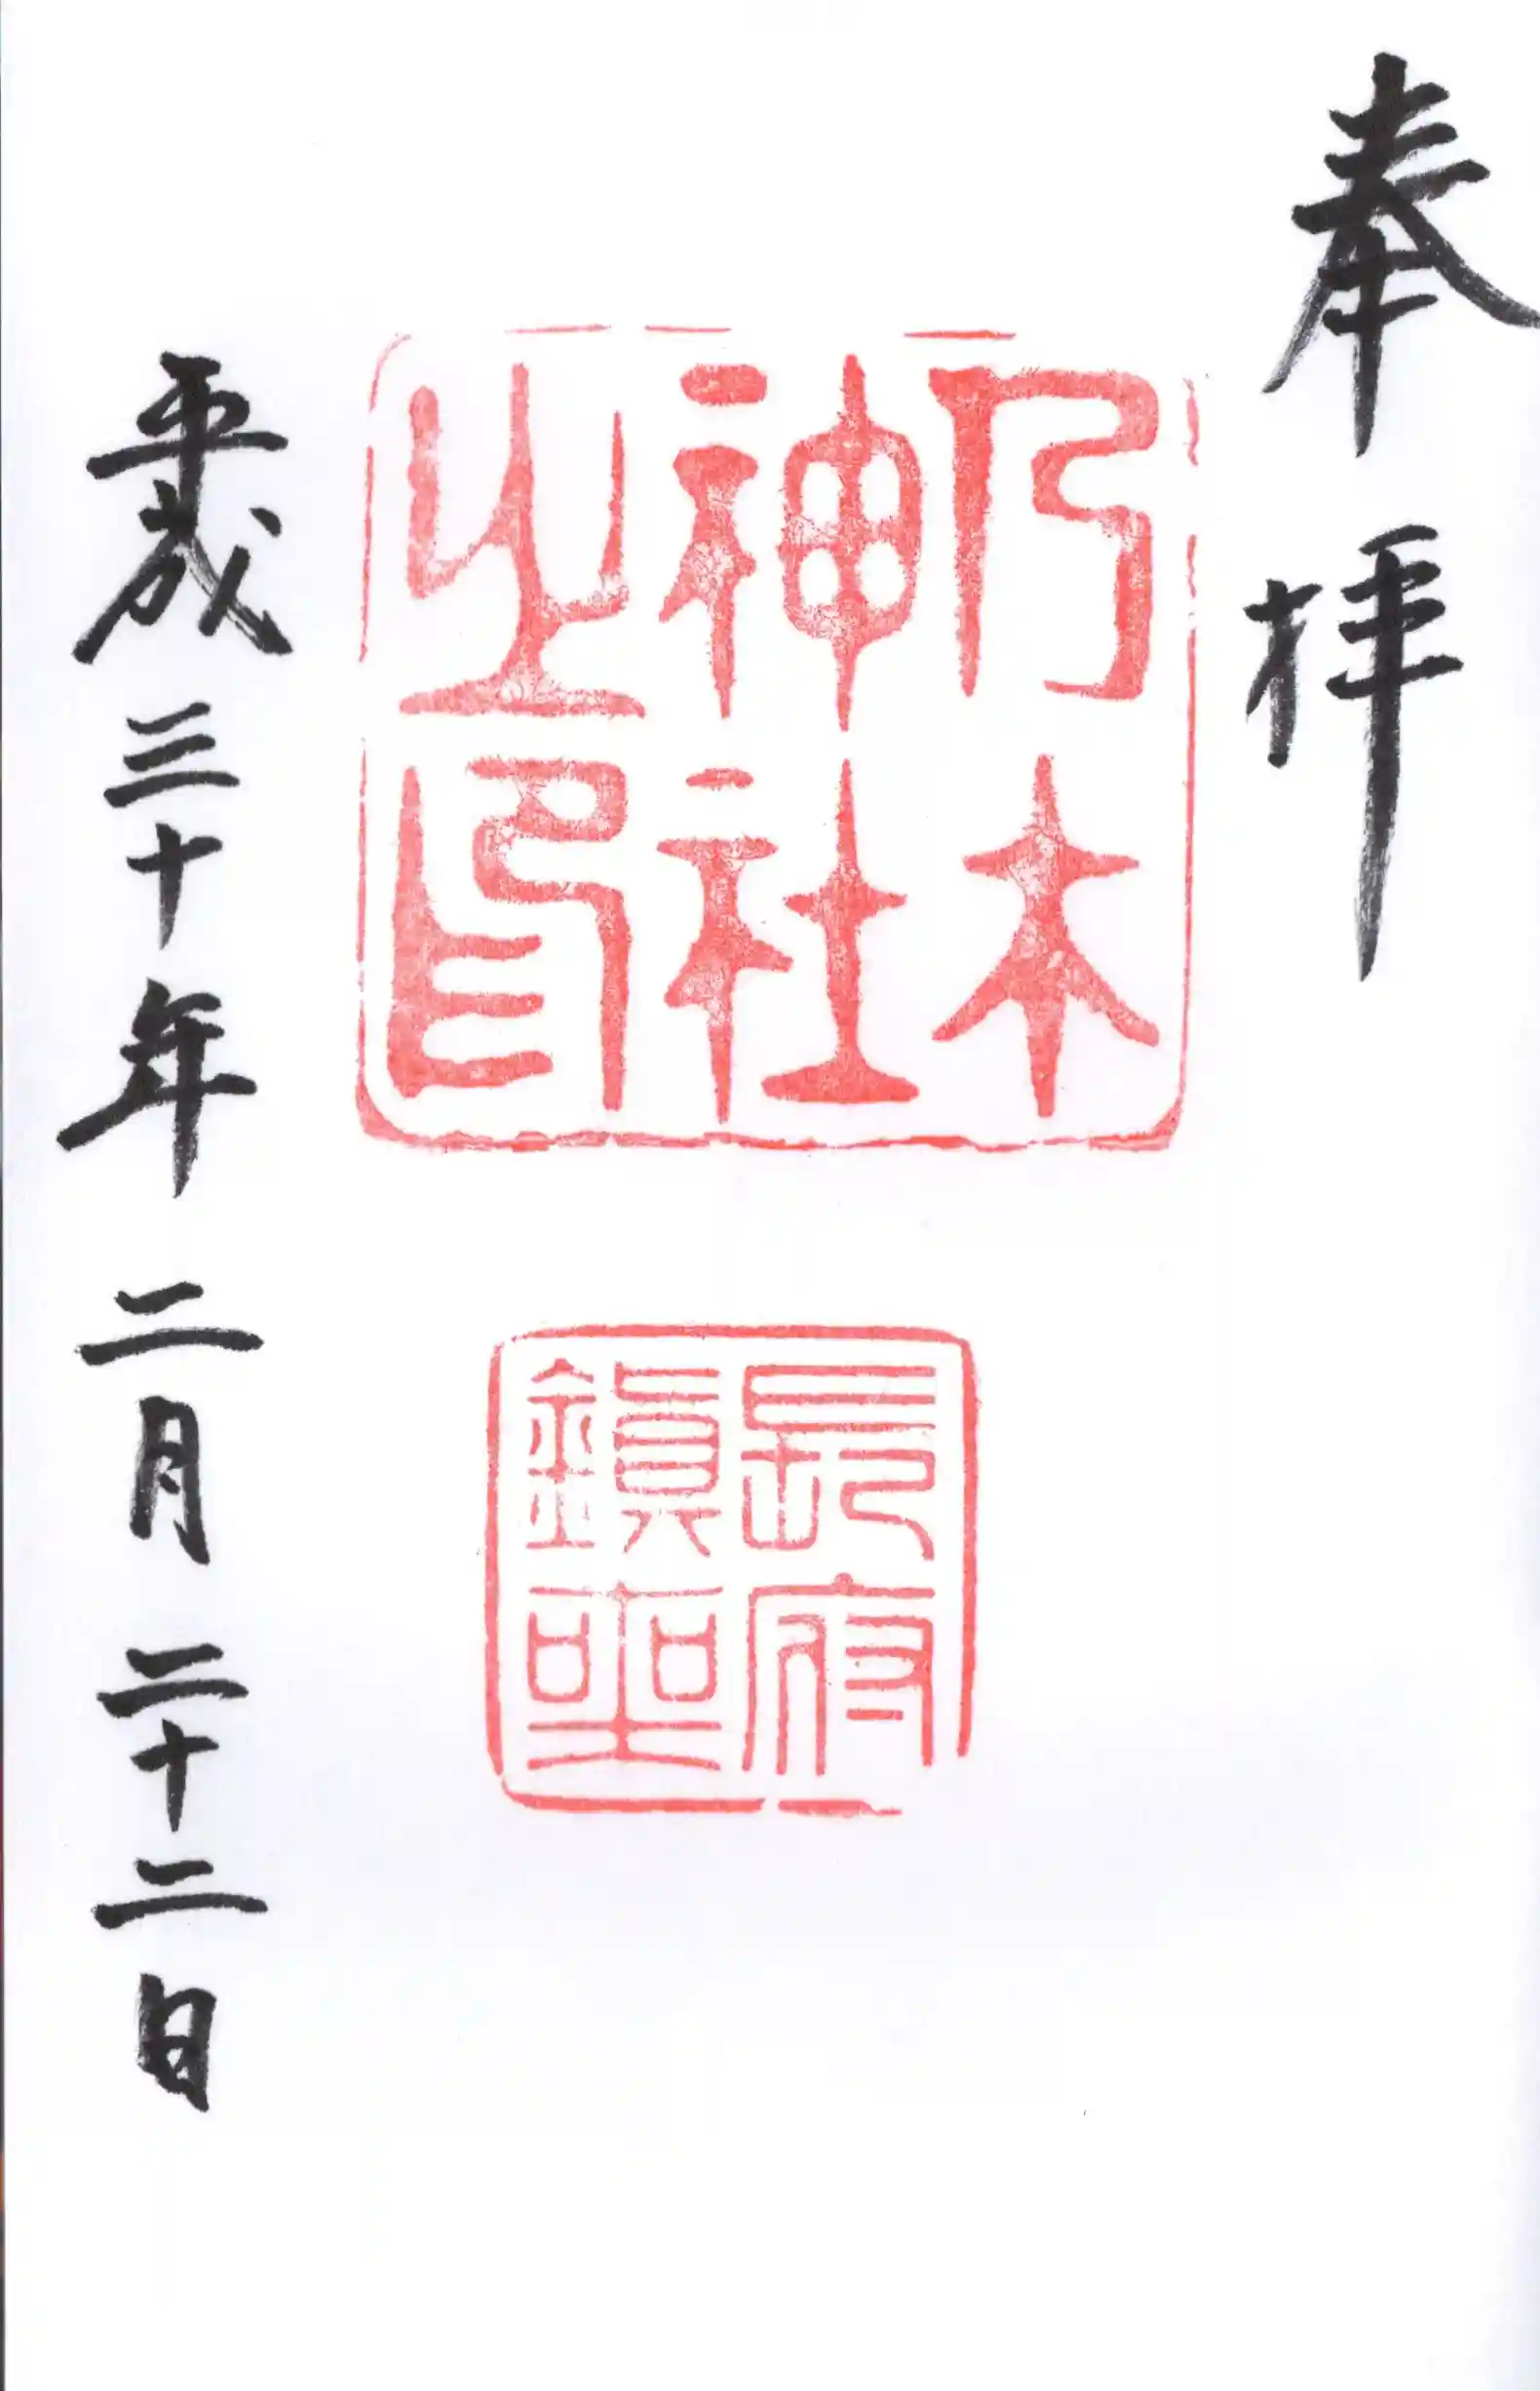 奉拝
乃木
神社
之印
長府
鎮座
平成三十年二月二十二日